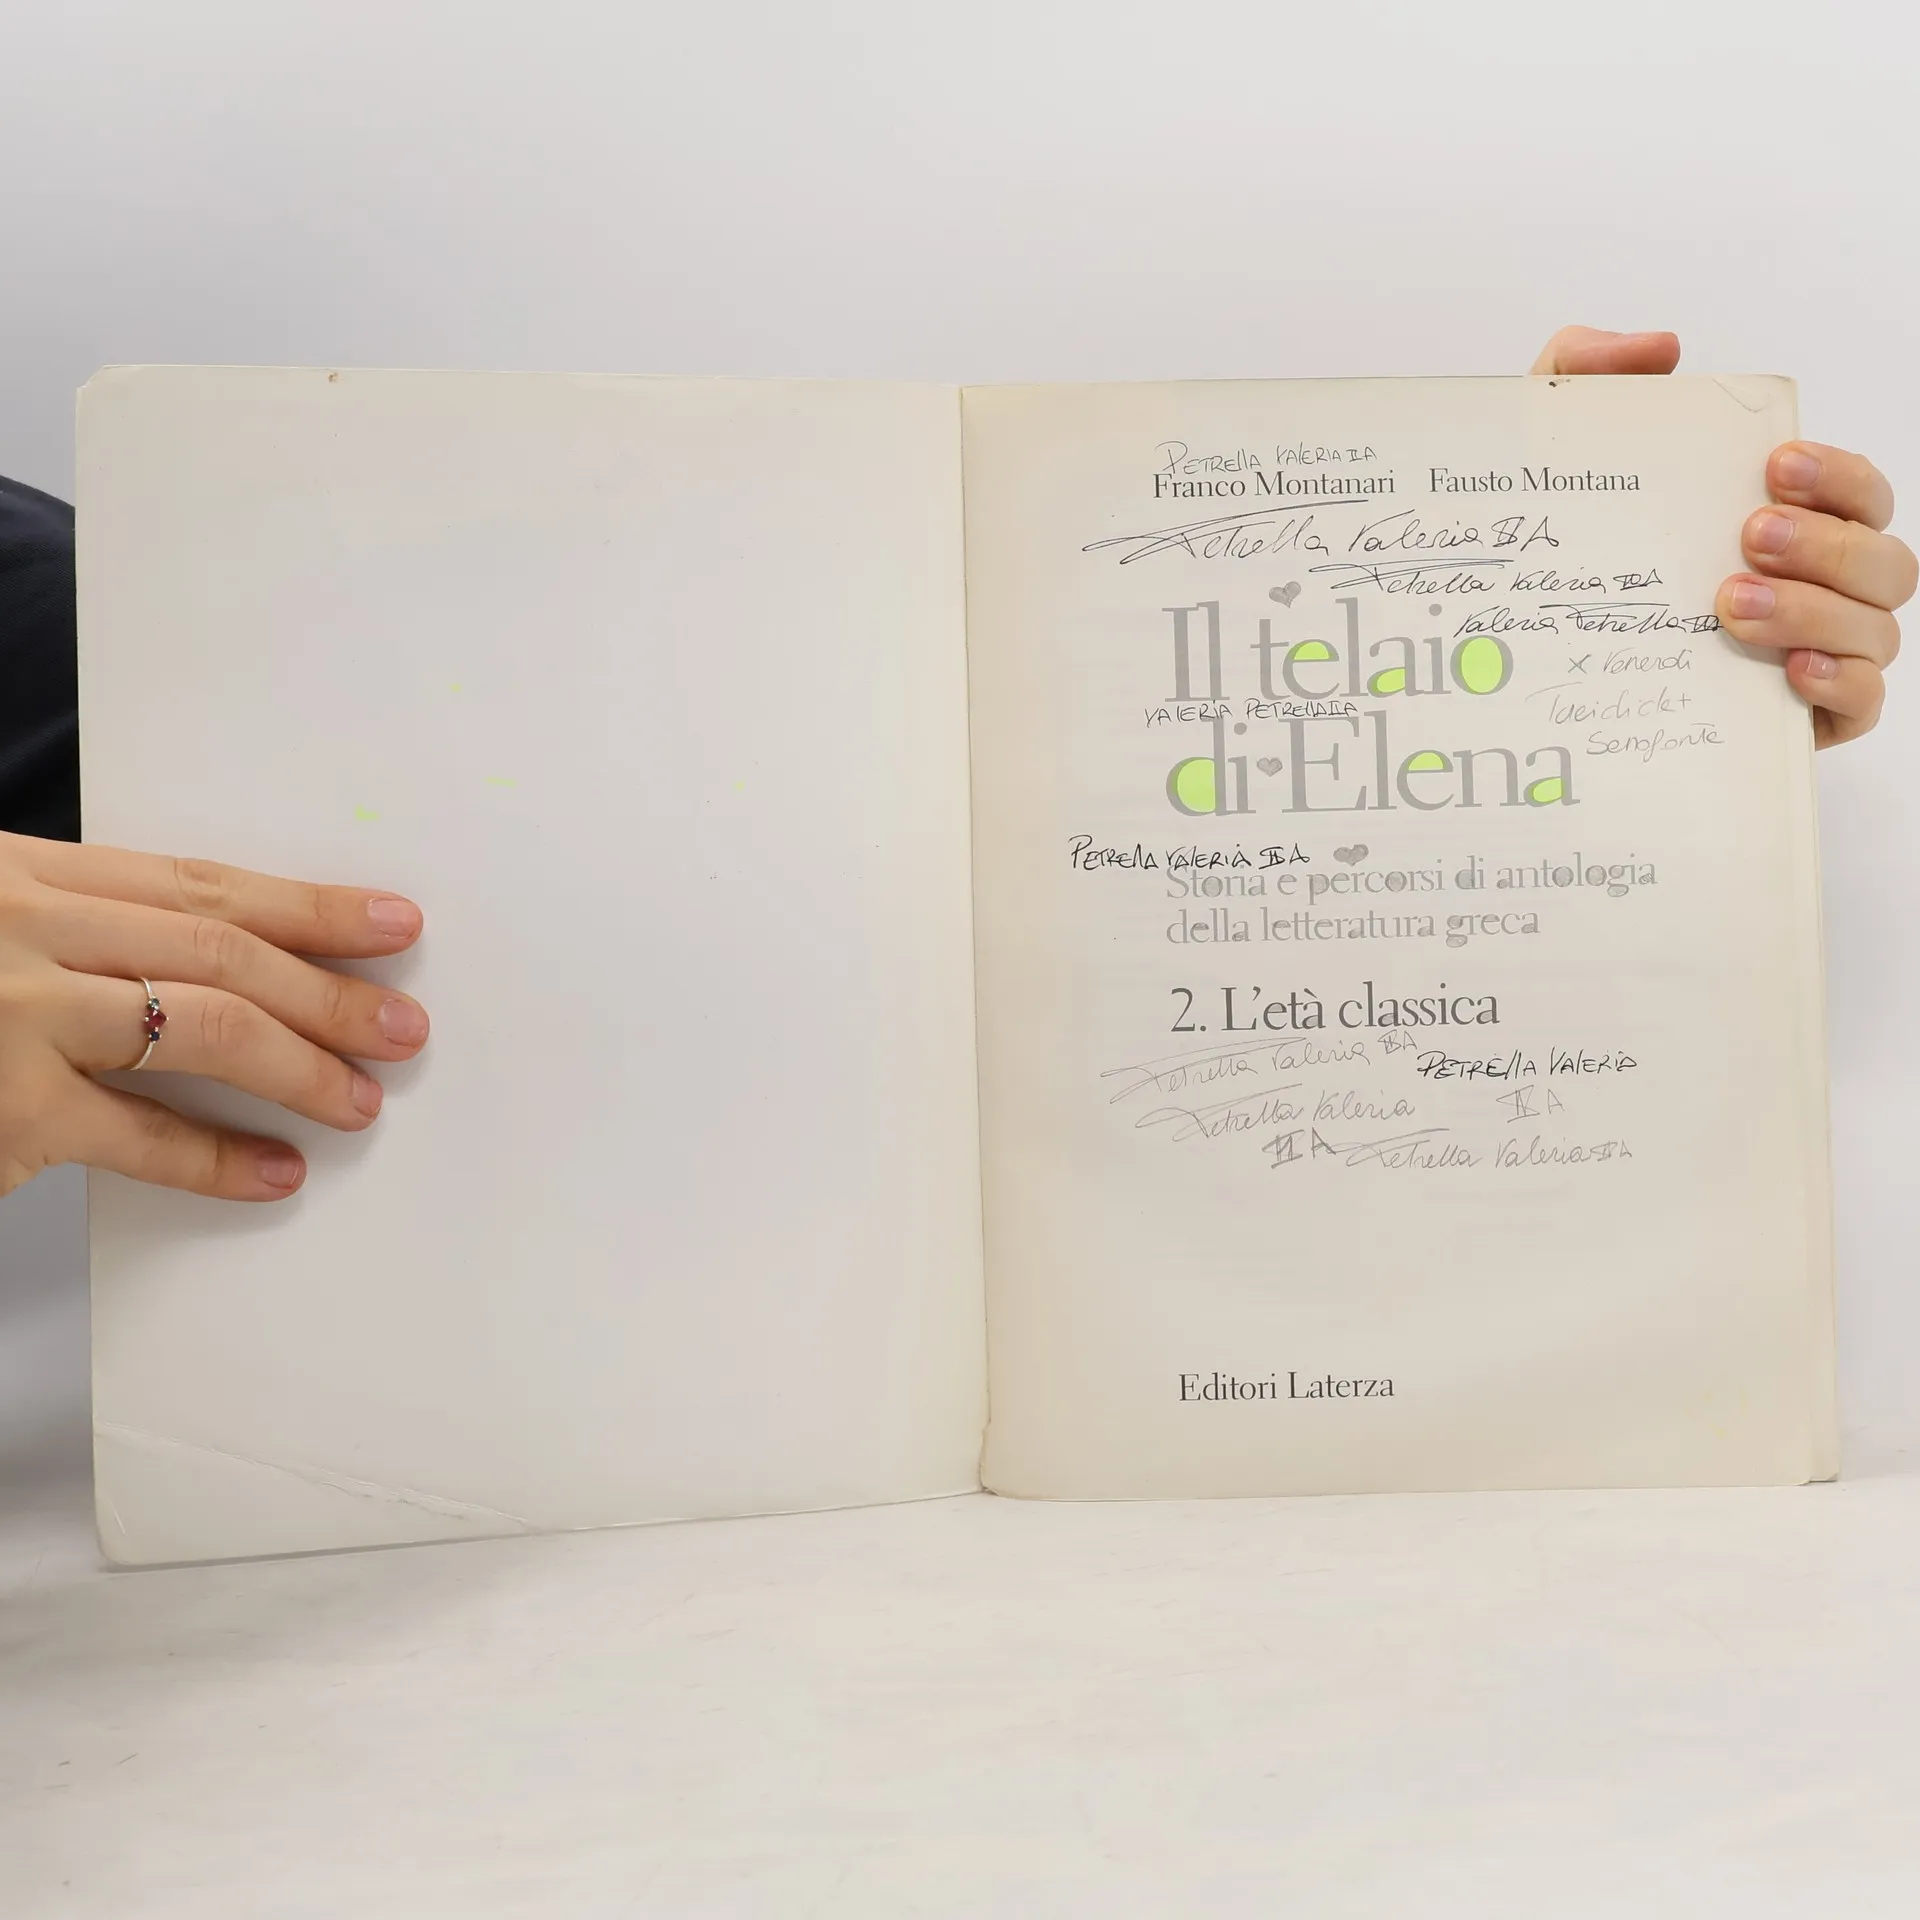 PETRELLA VALERIA IIA
Franco Montanari Fausto Montana
Petrella Valeria IIA
Petrella Valeria IIA
Valeria Petrella IIA
Il telaio
x Venerdì
Tucidide +
VALERIA PETRELLA IIA
Senofonte
di Elena
PETRELLA VALERIA IIA
Storia e percorsi di antologia
della letteratura greca
2. L'età classica
Petrella Valeria IIA
PETRELLA VALERIA
IIA
Petrella Valeria
IIA
Petrella Valeria IIA
Editori Laterza